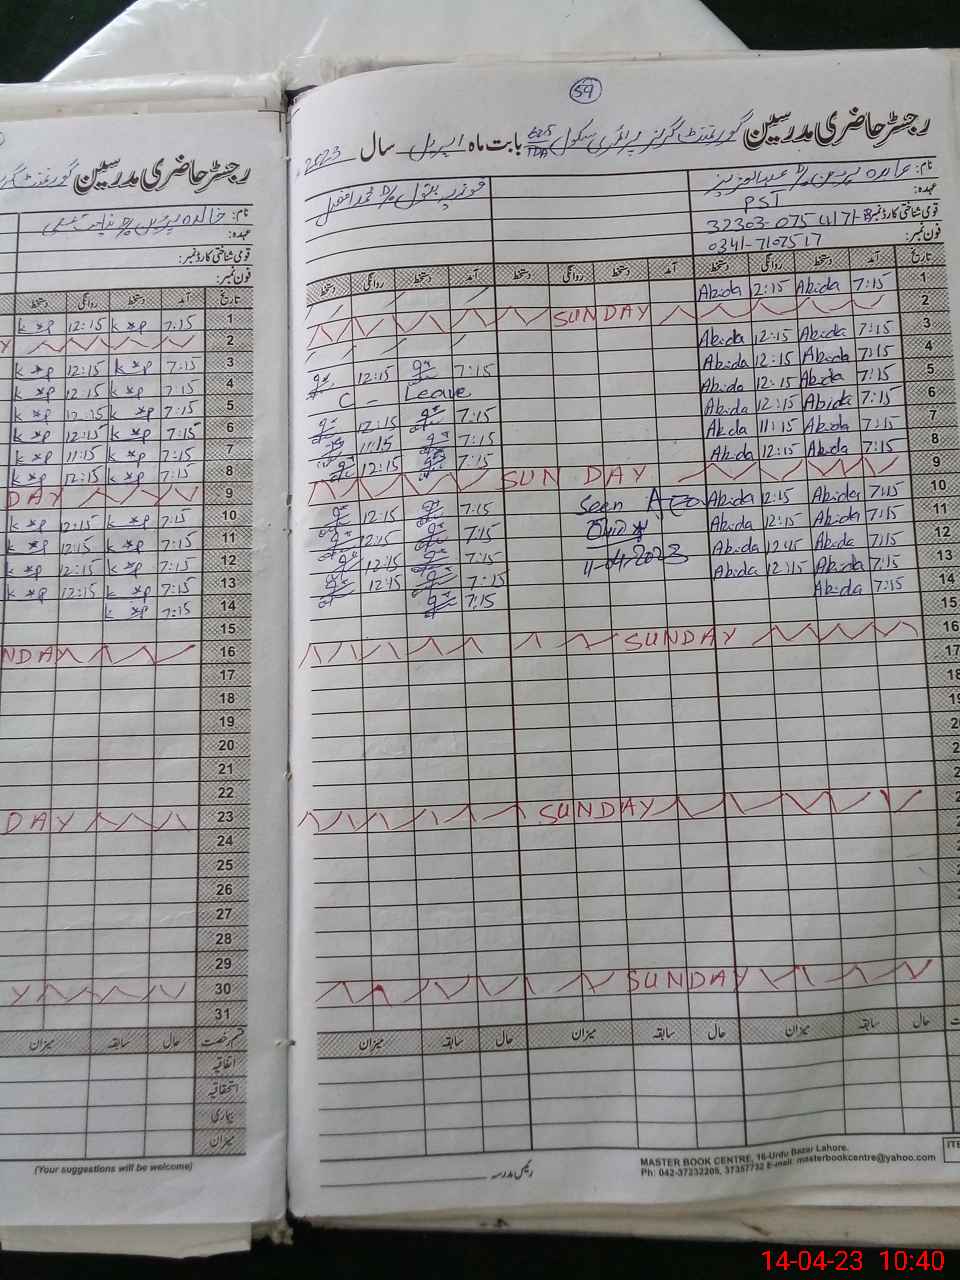 59
رجسٹر حاضری مدرسین گورنمنٹ گرلز پرائمری سکول بابت ماہ اپریل سال 2023
نام: عابدہ پروین
عہدہ: PST
قومی شناختی کارڈ نمبر: 32303-0754171-8
فون نمبر: 0341-7107517
تاریخ آمد دستخط روانگی دستخط آمد دستخط روانگی دستخط آمد دستخط روانگی دستخط
1 7:15 Abida 12:15 Abida
2 SUNDAY
3 7:15 Abida 12:15 Abida
4 7:15 Abida 12:15 Abida 7:15 12:15
5 7:15 Abida 12:15 Abida C - Leave
6 7:15 Abida 12:15 Abida 7:15 12:15
7 7:15 Abida 11:15 Abida 7:15 11:15
8 7:15 Abida 12:15 Abida 7:15 12:15
9 SUNDAY
10 7:15 Abida 12:15 Abida Seen 7:15 12:15
11 7:15 Abida 12:15 Abida 7:15 12:15
12 7:15 Abida 12:15 Abida 11-04-2023 7:15 12:15
13 7:15 Abida 12:15 Abida 7:15 12:15
14 7:15 Abida 7:15
15
16 SUNDAY
17
18
19
SUNDAY
SUNDAY
حال سابقہ میزان حال سابقہ میزان حال سابقہ میزان
رئیس مدرسہ
MASTER BOOK CENTRE, 16-Urdu Bazar Lahore.
Ph: 042-37232205, 37357732 E-mail: masterbookcentre@yahoo.com
ITE
رجسٹر حاضری مدرسین گورنمنٹ گر
نام: خالدہ پروین
عہدہ:
قومی شناختی کارڈ نمبر:
فون نمبر:
تاریخ آمد دستخط روانگی دستخط
1 7:15 k*p 12:15 k*p
2 Y
3 7:15 k*p 12:15 k*p
4 7:15 k*p 12:15 k*p
5 7:15 k*p 12:15 k*p
6 7:15 k*p 12:15 k*p
7 7:15 k*p 11:15 k*p
8 7:15 k*p 12:15 k*p
9 DAY
10 7:15 k*p 12:15 k*p
11 7:15 k*p 12:15 k*p
12 7:15 k*p 12:15 k*p
13 7:15 k*p 12:15 k*p
14 7:15 k*p
15
16 NDAY
17
18
19
20
21
22
23 DAY
24
25
26
27
28
29
30 Y
31
قسم رخصت حال سابقہ میزان
اتفاقیہ
استحقاقیہ
بیماری
میزان
(Your suggestions will be welcome)
14-04-23 10:40